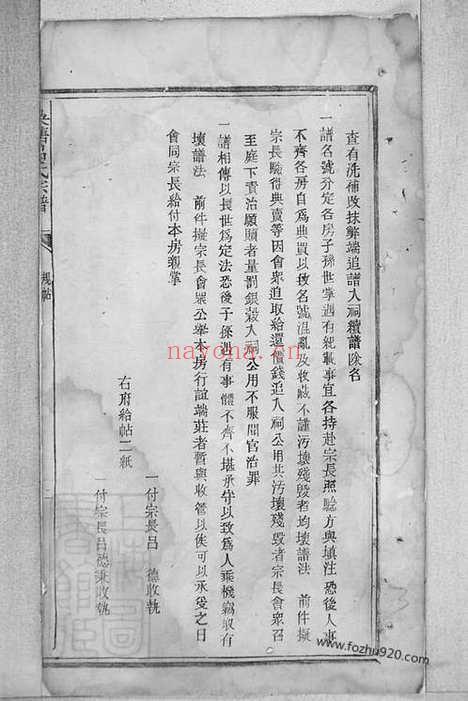 查有洗補改抹弊端追譜入祠續譜除名
一譜名號分定各房子孫世掌遇有纸載事宜各持赴宗長照驗方與填注恐後人事
不齊各房自為典買以致名號混亂及收藏不謹污壞殘毀者均壞譜法 前件擬
宗長驗得典賣等因會眾追取給還價錢追入祠公用共污壞殘毀者宗長會眾召
至庭下責治願贖者量罰銀穀入祠公用不服聞官治罪
一譜相傳以長世為定法恐後子孫遇有事體不齊不堪承守以致為人乘機竊取有
壞譜法 前件擬宗長會眾公舉本房行誼端莊者暫與收管以俟可以承受之日
會同宗長給付本房親掌
右府給帖二紙
一付宗長呂 德收執
一付宗長呂德秉收執
氏宗譜
規帖
nayona.cn
www.fozhu920.com